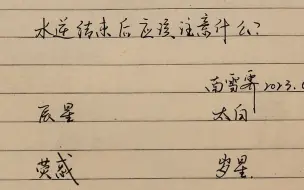 水逆结束后应该注意什么?
南雪霁 2023.
辰星 太白
荧惑 岁星